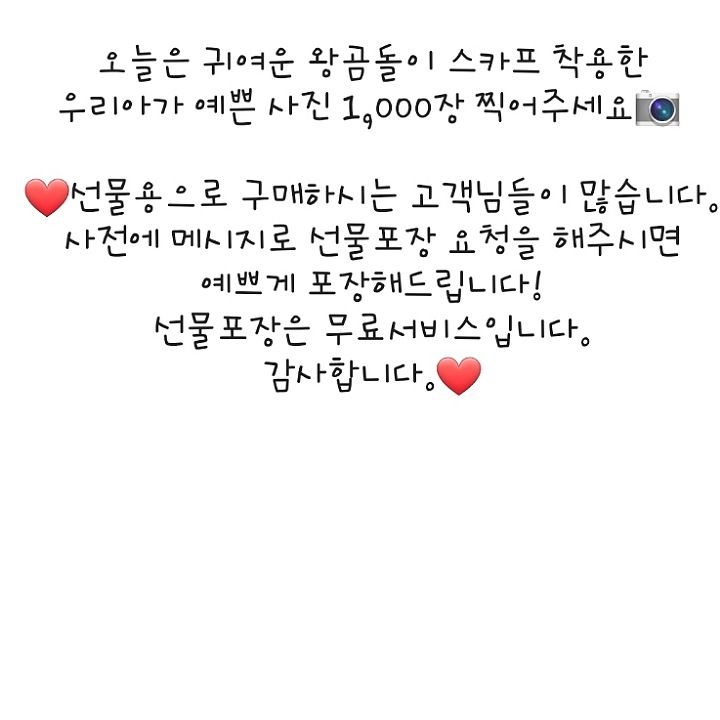 오늘은 귀여운 왕곰돌이 스카프 착용한
우리아가 예쁜 사진 1,000장 찍어주세요📷
❤️선물용으로 구매하시는 고객님들이 많습니다.
사전에 메시지로 선물포장 요청을 해주시면
예쁘게 포장해드립니다!
선물포장은 무료서비스입니다.
감사합니다.❤️